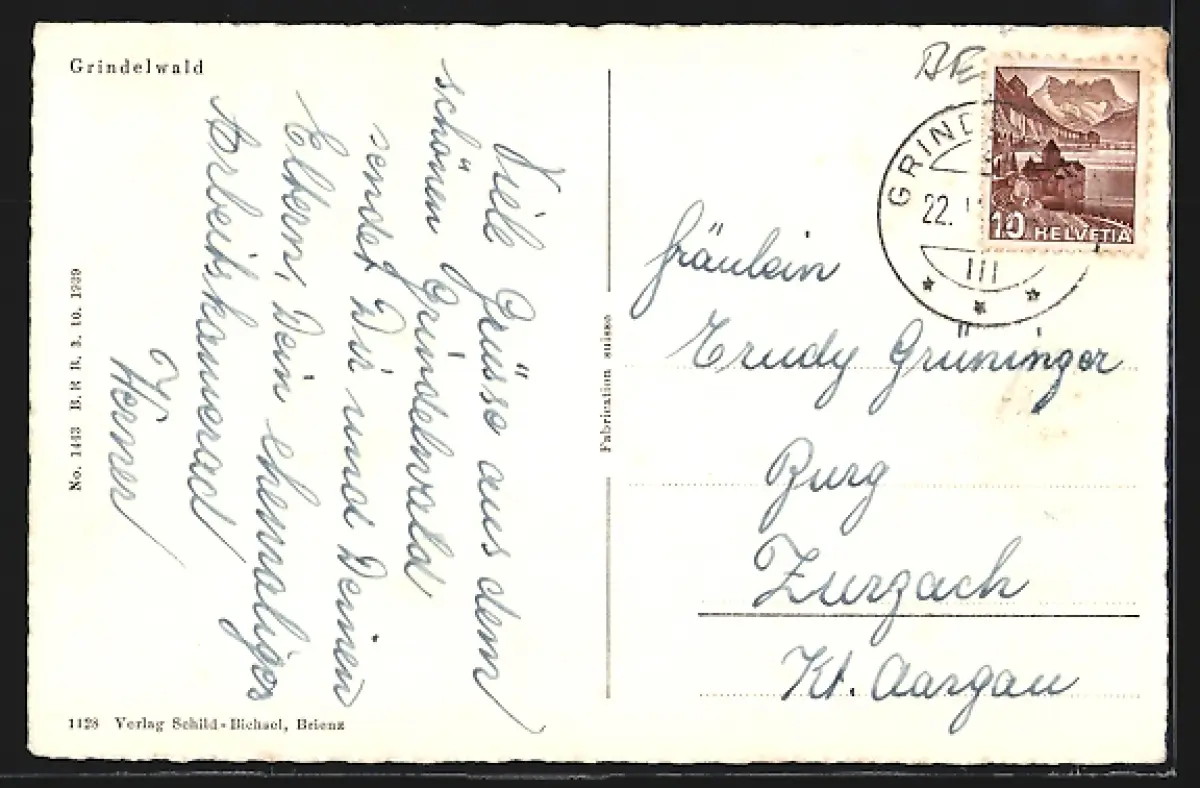 Grindelwald
Viele Grüsse aus dem
schönen Grindelwald
sendet Dir und Deinen
Eltern, Dein ehemaliger
Arbeitskamerad
Werner
No. 1443 B.R.B. 3. 10. 1939
1128 Verlag Schild-Bichsel, Brienz
Fabrication suisse
BE
GRIND
22.
III
10 HELVETIA
Fräulein
Trudy Grüninger
Burg
Zurzach
Kt. Aargau